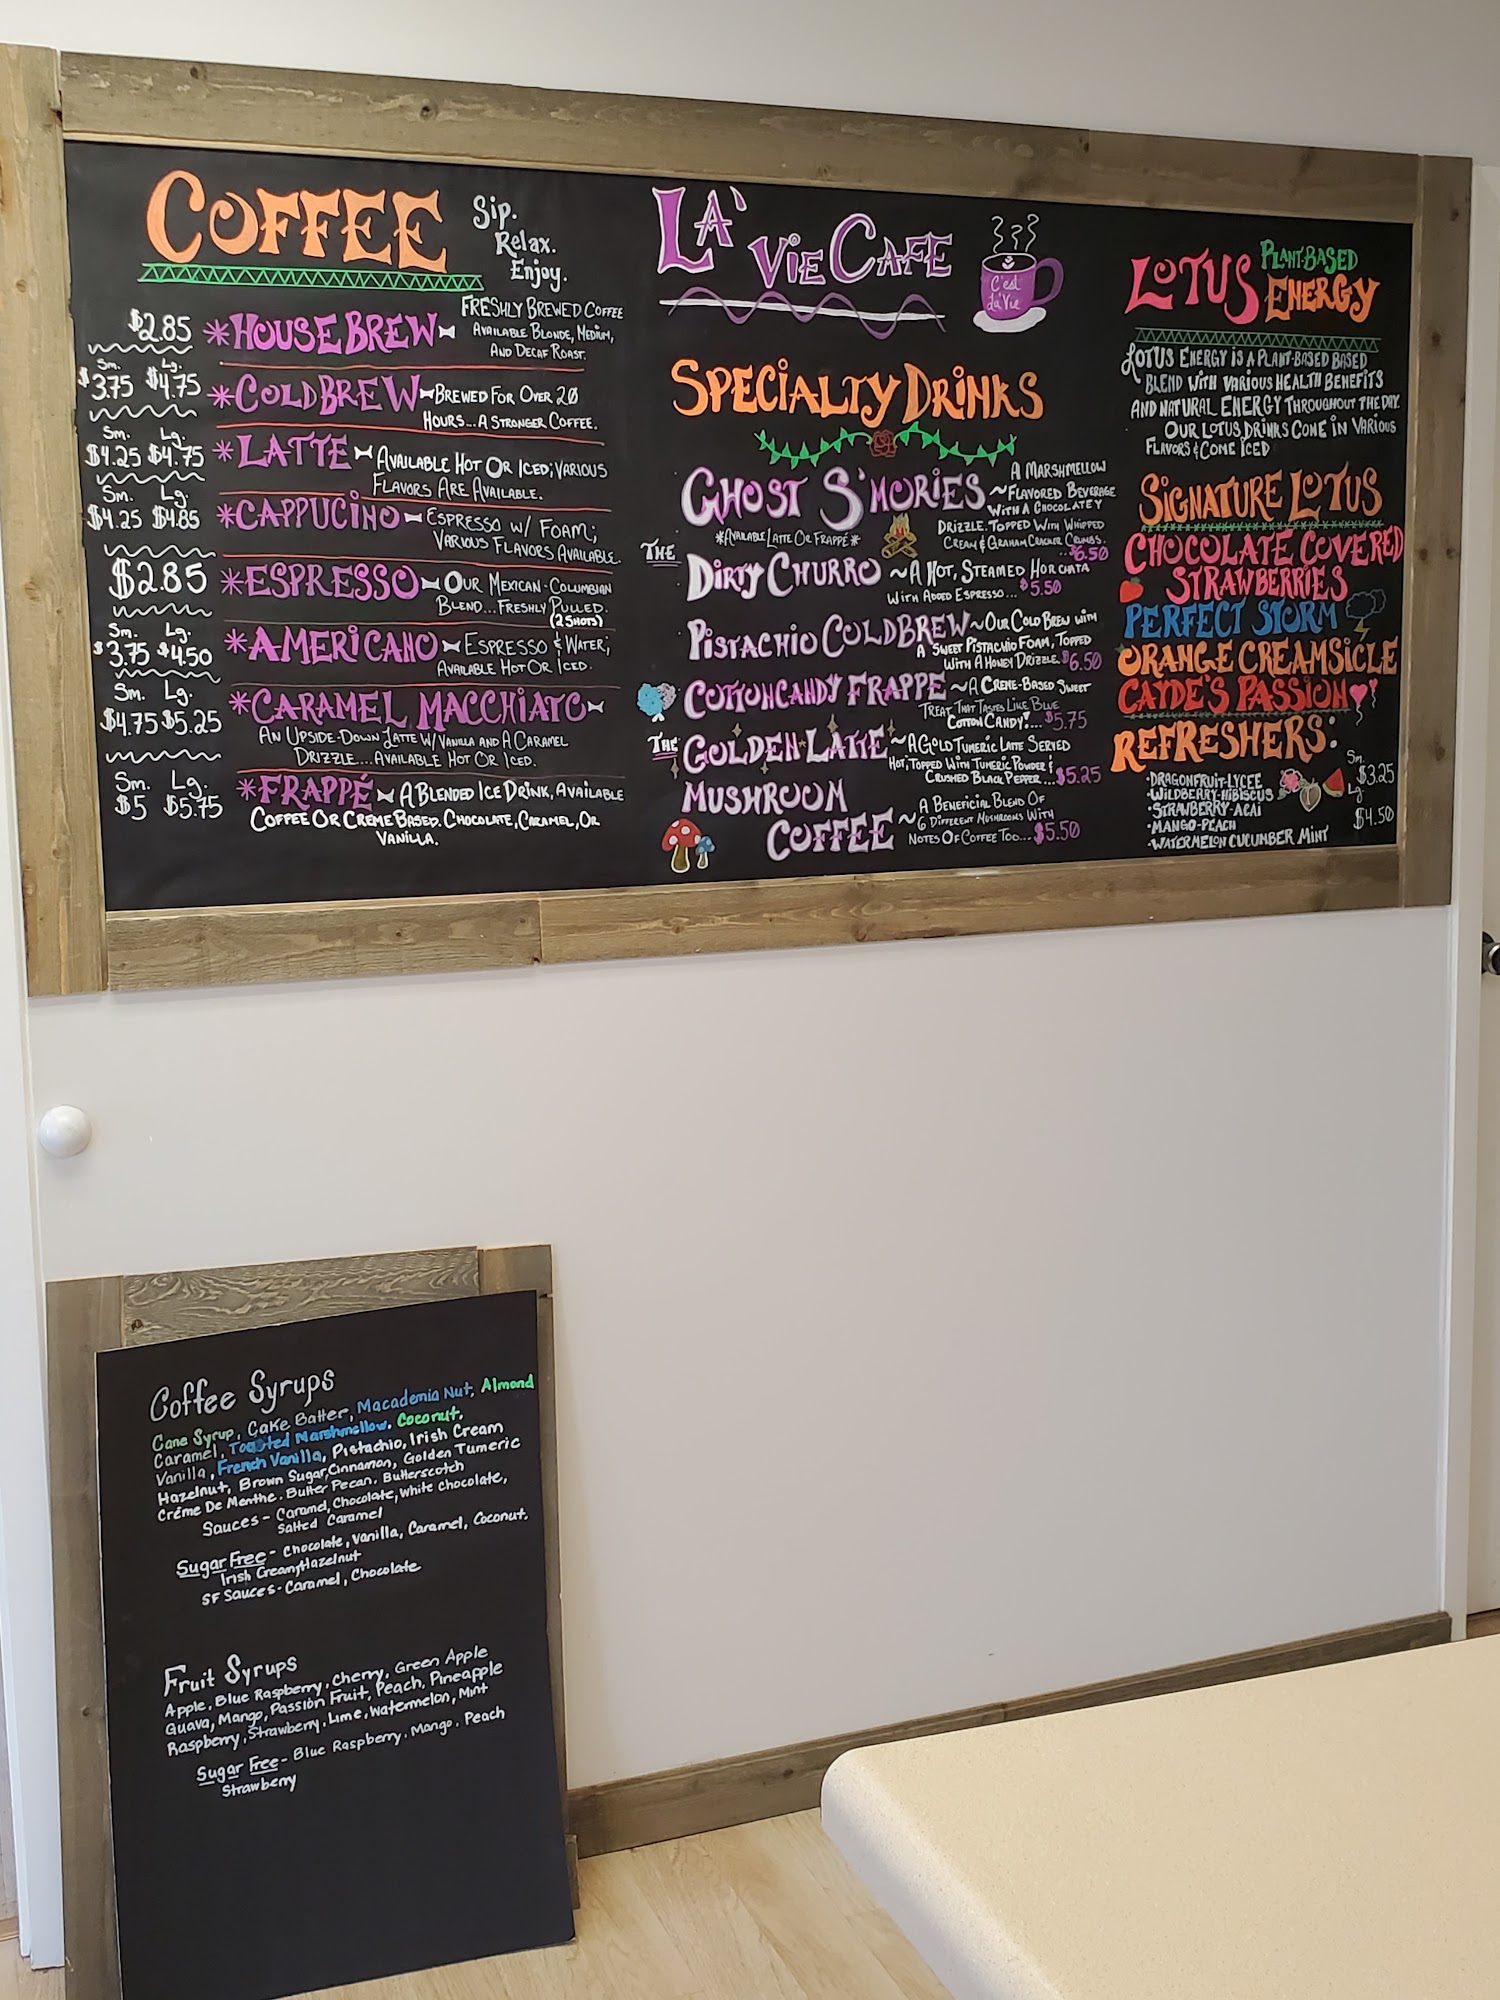 COFFEE
Sip.
Relax.
Enjoy.
$2.85 *HOUSE BREW
FRESHLY BREWED COFFEE
AVAILABLE BLONDE, MEDIUM,
AND DECAF ROAST.
Sm. Lg.
$3.75 $4.75 *COLD BREW BREWED FOR OVER 20
HOURS... A STRONGER COFFEE.
Sm. Lg.
$4.25 $4.75 *LATTE AVAILABLE HOT OR ICED; VARIOUS
FLAVORS ARE AVAILABLE.
Sm. Lg.
$4.25 $4.85 *CAPPUCINO ESPRESSO W/ FOAM;
VARIOUS FLAVORS AVAILABLE.
$2.85 *ESPRESSO OUR MEXICAN-COLUMBIAN
BLEND... FRESHLY PULLED.
(2 SHOTS)
Sm. Lg.
$3.75 $4.50 *AMERICANO ESPRESSO & WATER;
AVAILABLE HOT OR ICED.
Sm. Lg.
$4.75 $5.25 *CARAMEL MACCHIATO
AN UPSIDE-DOWN LATTE W/ VANILLA AND A CARAMEL
DRIZZLE.... AVAILABLE HOT OR ICED.
Sm. Lg.
$5 $5.75 *FRAPPÉ A BLENDED ICE DRINK, AVAILABLE
COFFEE OR CREME BASED. CHOCOLATE, CARAMEL, OR
VANILLA.
LA' VIE CAFE
C'est
La'Vie
SPECIALTY DRINKS
GHOST S'MORIES
A MARSHMELLOW
~FLAVORED BEVERAGE
WITH A CHOCOLATEY
DRIZZLE. TOPPED WITH WHIPPED
CREAM & GRAHAM CRACKER CRUMBS.
...$6.50
*AVAILABLE LATTE OR FRAPPÉ*
THE DIRTY CHURRO ~A HOT, STEAMED HORCHATA
WITH ADDED ESPRESSO... $5.50
PISTACHIO COLD BREW ~OUR COLD BREW WITH
A SWEET PISTACHIO FOAM, TOPPED
WITH A HONEY DRIZZLE. $6.50
COTTON CANDY FRAPPE ~A CREME-BASED SWEET
TREAT THAT TASTES LIKE BLUE
COTTON CANDY!... $5.75
THE GOLDEN LATTE ~A GOLD TUMERIC LATTE SERVED
HOT, TOPPED WITH TUMERIC POWDER &
CRUSHED BLACK PEPPER...$5.25
MUSHROOM
COFFEE
~ A BENEFICIAL BLEND OF
6 DIFFERENT MUSHROOMS WITH
NOTES OF COFFEE TOO...$5.50
LOTUS PLANT-BASED
ENERGY
LOTUS ENERGY IS A PLANT-BASED BASED
BLEND WITH VARIOUS HEALTH BENEFITS
AND NATURAL ENERGY THROUGHOUT THE DAY.
OUR LOTUS DRINKS COME IN VARIOUS
FLAVORS & COME ICED
SIGNATURE LOTUS
CHOCOLATE COVERED
STRAWBERRIES
PERFECT STORM
ORANGE CREAMSICLE
CAYDE'S PASSION
REFRESHERS:
•DRAGONFRUIT-LYCEE
•WILDBERRY-HIBISCUS
•STRAWBERRY-ACAI
•MANGO-PEACH
•WATERMELON CUCUMBER MINT
Sm.
$3.25
Lg.
$4.50
Coffee Syrups
Cane Syrup, Cake Batter, Macademia Nut, Almond
Caramel, Toasted Marshmellow, Coconut,
Vanilla, French Vanilla, Pistachio, Irish Cream
Hazelnut, Brown Sugar, Cinnamon, Golden Tumeric
Créme De Menthe, Butter Pecan, Butterscotch
Sauces - Caramel, Chocolate, White Chocolate,
Salted Caramel
Sugar Free - Chocolate, Vanilla, Caramel, Coconut,
Irish Cream, Hazelnut
SF Sauces - Caramel, Chocolate
Fruit Syrups
Apple, Blue Raspberry, Cherry, Green Apple
Guava, Mango, Passion Fruit, Peach, Pineapple
Raspberry, Strawberry, Lime, Watermelon, Mint
Sugar Free - Blue Raspberry, Mango, Peach
Strawberry